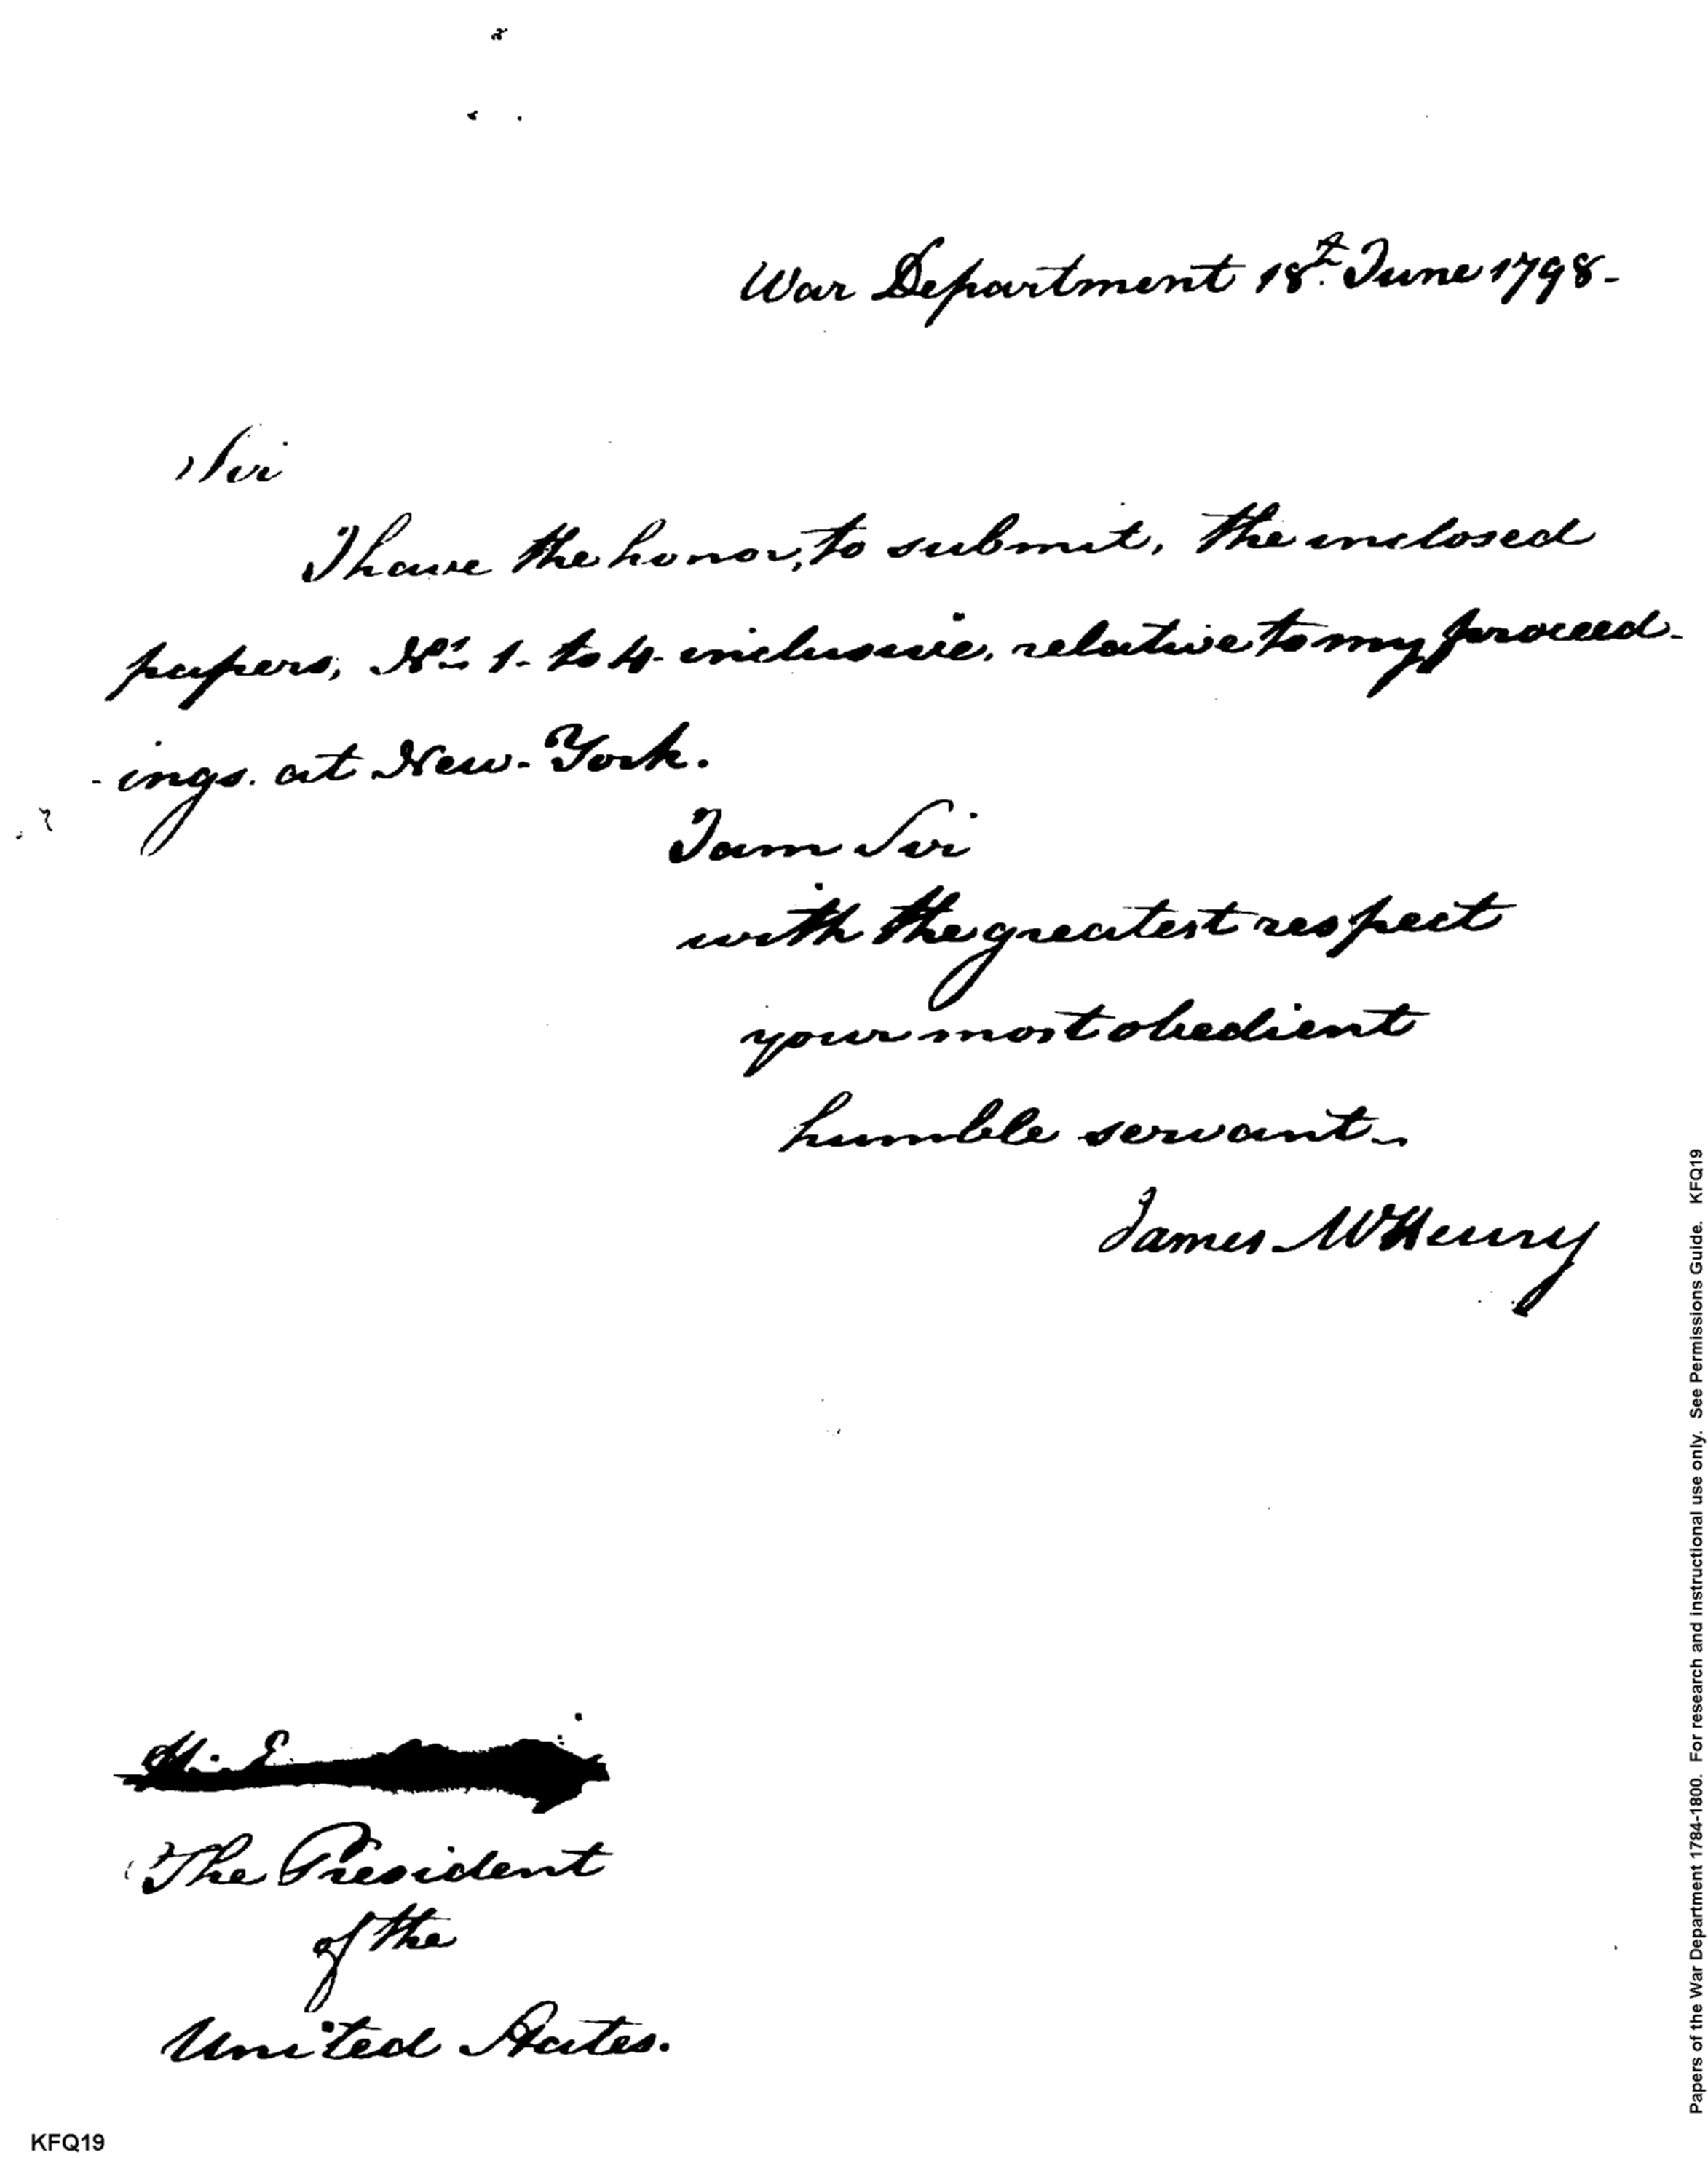 War Department 18th June 1798-
Sir
I have the honor, to submit, the inclosed
papers, Nos. 1- to 4- inclusive, relative to my proceed-
-ings. at New-York.
I am Sir
with the greatest respect
your most obedient
humble servant
James McHenry
The President
of the
United States.
KFQ19
Papers of the War Department 1784-1800. For research and instructional use only. See Permissions Guide. KFQ19